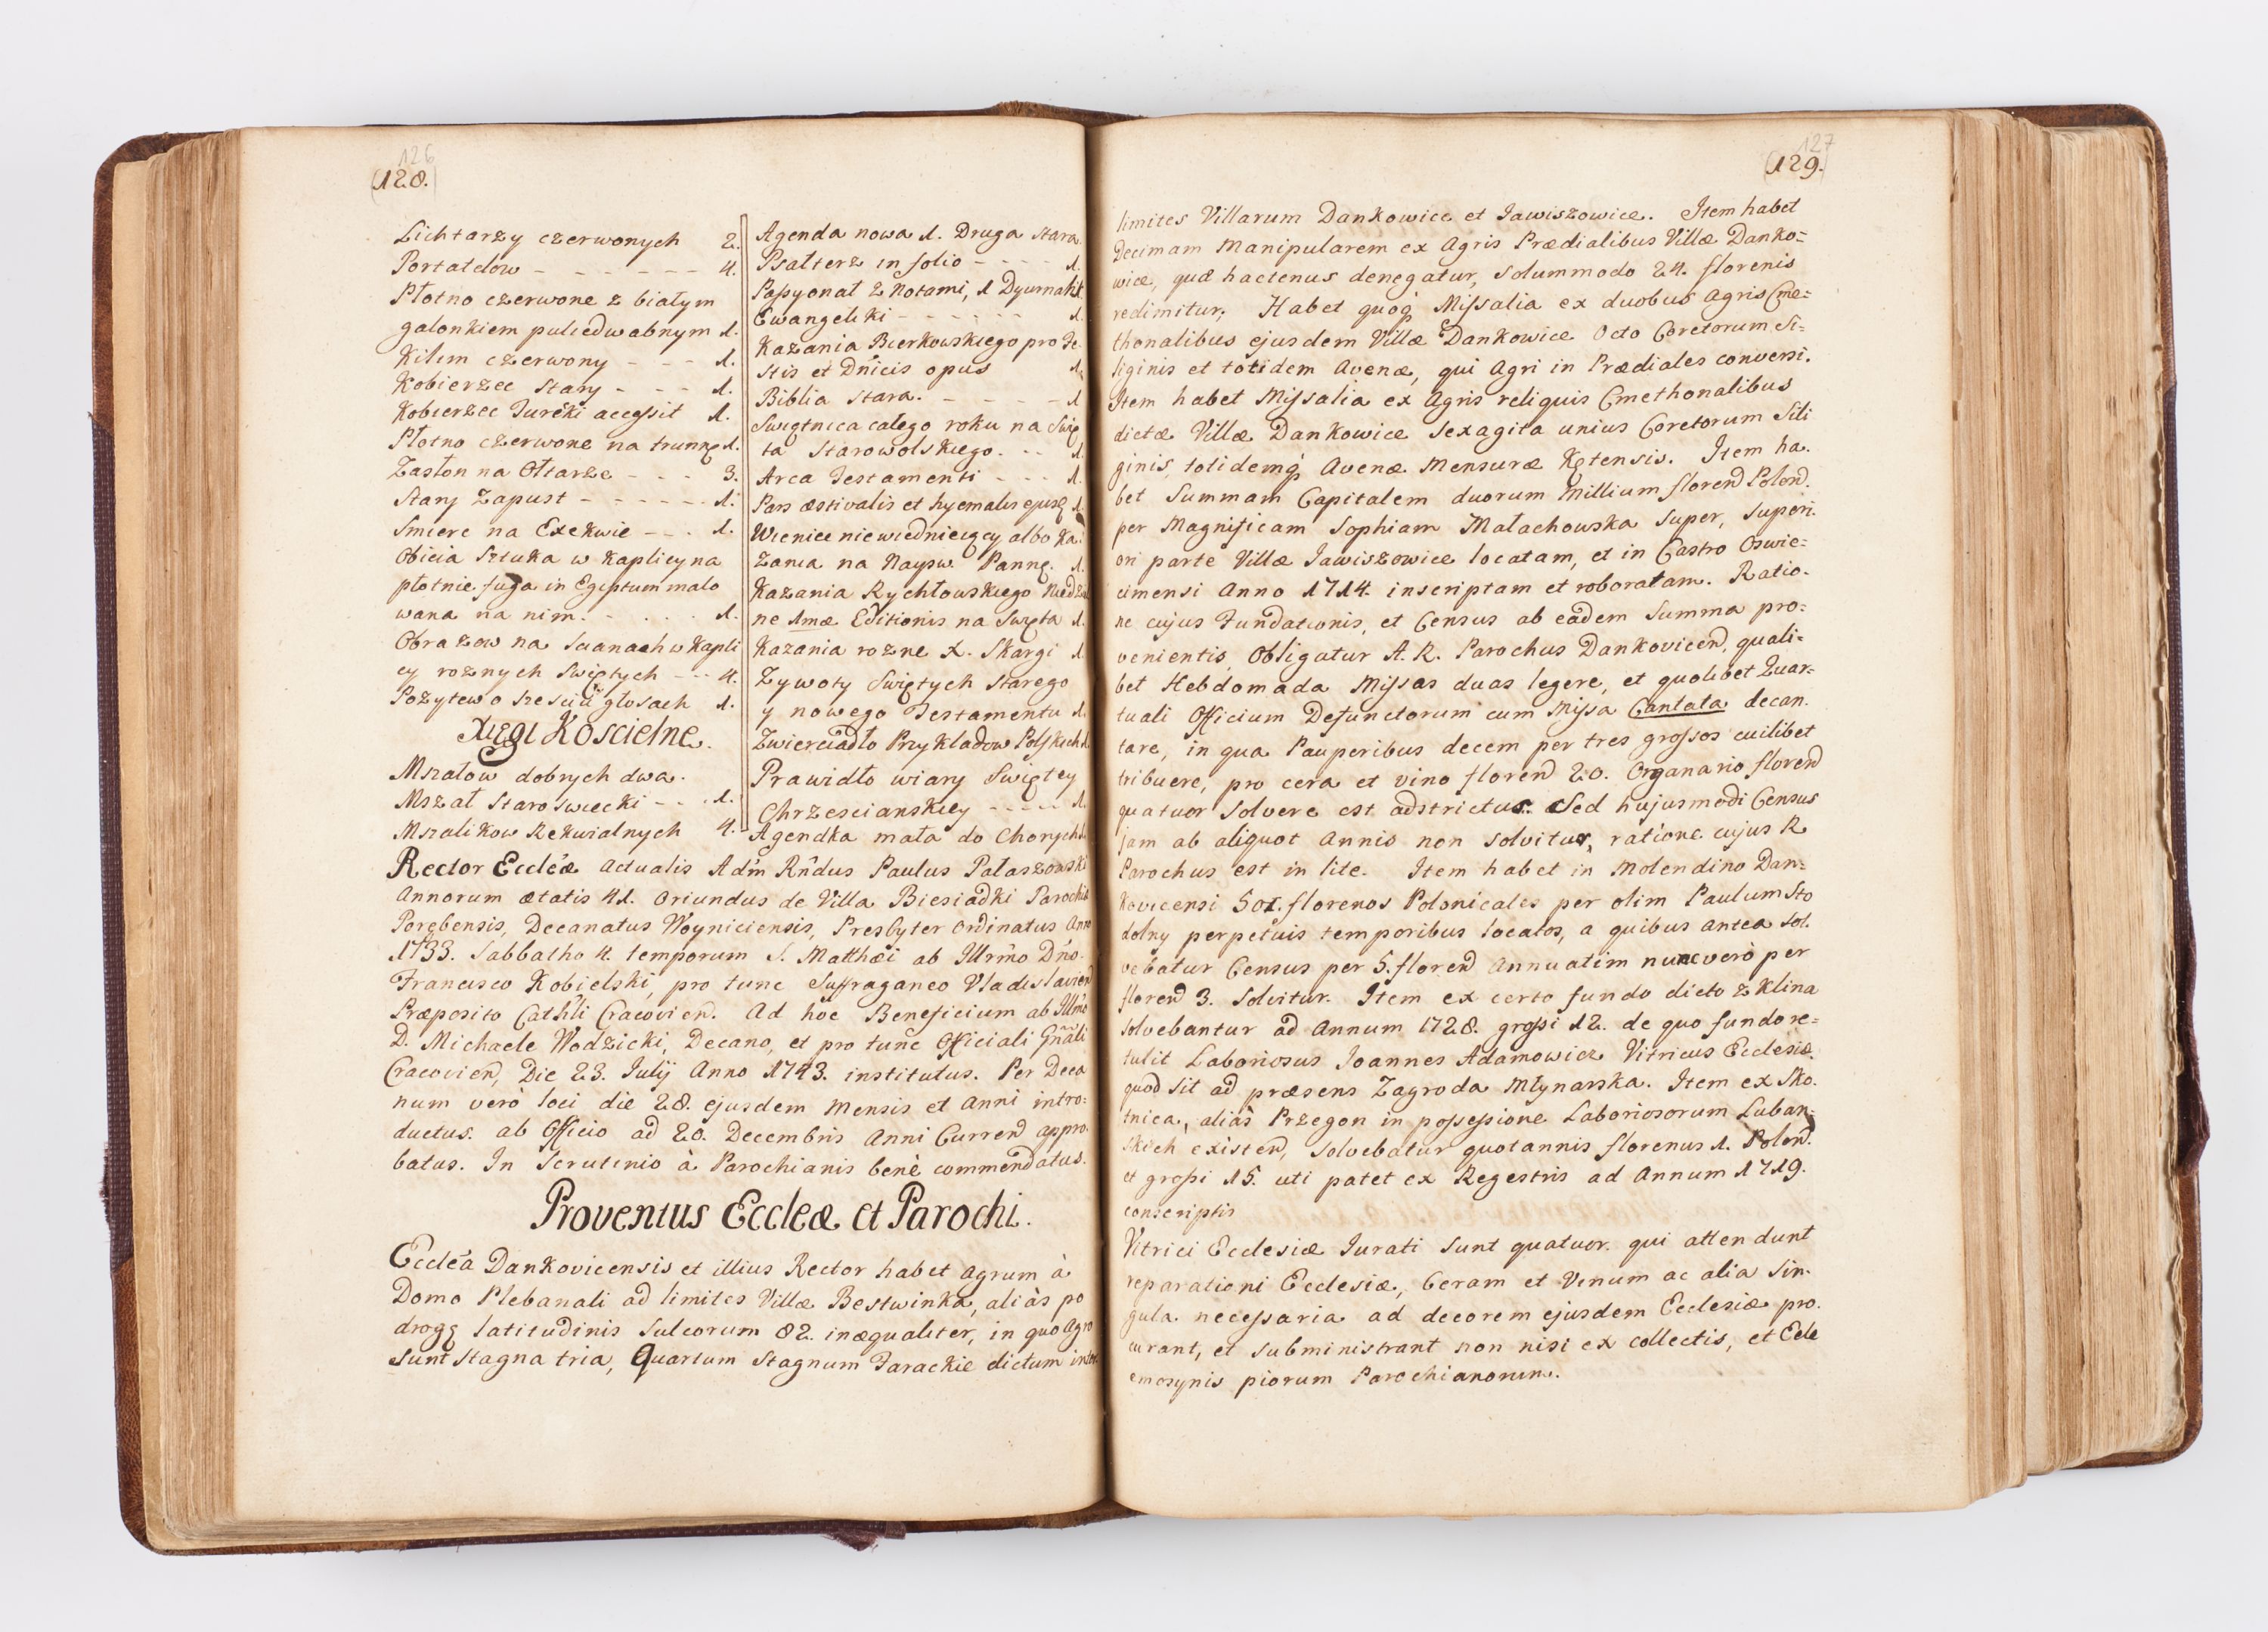 126
(128.)
Lichtarzy czerwonych 2.
Portatelow - - - - - - 4.
Płotno czerwone z białym
galonkiem pułjedwabnym 1.
Kilim czerwony - - 1.
Kobierzec stary - - - 1.
Kobierzec Turecki accessit 1.
Płotno czerwone na trunnę 1.
Zasłon na Ołtarze - - - 3.
Stary Zapust - - - - - - 1.
Smierc na Exekwie - - . 1.
Obicia Sztuka w Kaplicy na
płotnie fuga in Egiptum malo
wana na nim. - . . . 1.
Obrazow na Scianach w Kapli
cy roznych Swiętych - - - 4.
Pozytew o szesciu głosach 1.
Xięgi Koscielne.
Mszałow dobrych dwa.
Mszał Staroswiecki - - . 1.
Mszalikow Rekwialnych 4.
Agenda nowa 1. Druga stara.
Psałterz in folio - - - - 1.
Passyonał z Notami, 1 Dyurnalik
Ewangeliki - - - - - - 1.
Kazania Bierkowskiego pro Fe-
stis et Dnicis opus 1.
Biblia stara. - - - - - 1
Swiątnica całego roku na Swię
ta Starowolskiego. - - 1.
Arca Testamenti - - - 1.
Pars æstivalis et hyemalis ejusd 1.
Wienice niewiedniejący albo Ka-
zania na Nayśw. Pannę. 1.
Kazania Rychłowskiego Niedziel
ne 1mæ Editionis na Swięta 1.
Kazania rozne X. Skargi 1.
Zywoty Swiętych starego
y nowego Testamentu 1.
Zwierciadło Przykladow Polskich 1.
Prawidło wiary Swiętey
Chrzescianskiey - - - - - 1.
Agendka mała do Chorych 1.
Rector Eccleæ actualis Adm Rndus Paulus Pałaszowski
Annorum ætatis 41. oriundus de Villa Biesiadki Parochiæ
Porębensis, Decanatus Woyniciensis, Presbyter ordinatus Anno
1733. Sabbatho 4. temporum S. Matthæi ab Illrmo Dno.
Francisco Kobielski, pro tunc Suffraganeo Vladislavien
Præposito Cathli Cracovien. Ad hoc Beneficium ab Illmo
D. Michaele Wodzicki, Decano, et pro tunc Officiali Gnali
Cracovien, Die 23. Julij Anno 1743. institutus. Per Deca
num verò loci die 28. ejusdem Mensis et Anni intro:
ductus. ab Officio ad 20. Decembris Anni Curren appro.
batus. In Scrutinio à Parochianis benè commendatus.
Proventus Eccleæ et Parochi.
Ecclea Dankovicensis et illius Rector habet agrum à
Domo Plebanali ad limites Villæ Bestwinka, aliàs po
drogę latitudinis Sulcorum 82. inæqualiter, in quo Agro
sunt Stagna tria, Quartum Stagnum Tarackie dictum inter
127
(129.)
limites Villarum Dankowice et Jawiszowice. Item habet
Decimam Manipularem ex Agris Prædialibus Villæ Danko=
wice, quæ hactenus denegatur, solummodo 24. florenis
redimitur. Habet quoq́ Missalia ex duobus Agris Cme:
thonalibus ejusdem Villæ Dankowice Octo Coretorum Si=
liginis et totidem Avenæ, qui Agri in Prædiales conversi.
Item habet Missalia ex Agris reliquis Cmethonalibus
dictæ Villæ Dankowice sexagita unius Coretorum Sili
ginis, totidemq́ Avenæ Mensuræ Kętensis. Item ha.
bet Summam Capitalem duorum Millium floren Polon.
per Magnificam Sophiam Małachowska super, superi-
ori parte Villæ Jawiszowice locatam, et in Castro Oswie:
cimensi Anno 1714. inscriptam et roboratam. Ratio-
ne cujus Fundationis, et Census ab eadem Summa pro:
venientis, Obligatur A. R. Parochus Dankovicen, quali=
bet Hebdomada Missas duas legere, et quolibet Quar-
tuali Officium Defunctorum cum Missa Cantata decan.
tare, in qua Pauperibus decem per tres grossos cuilibet
tribuere, pro cera et vino floren 20. Organario floren
quatuor solvere est adstrictus. Sed hujusmodi Census
jam ab aliquot Annis non solvitur, ratione cujus R
Parochus est in lite. Item habet in Molendino Dan:
kovicensi 50. florenos Polonicales per olim Paulum Sto
dolny perpetuis temporibus locatos, a quibus antea sol.
vebatur Census per 5. floren Annuatim nunc verò per
floren 3. Solvitur. Item ex certo fundo dicto z Klina
solvebantur ad Annum 1728. grossi 12. de quo fundo re=
tulit Laboriosus Joannes Adamowicz Vitricus Ecclesiæ.
quod sit ad præsens Zagroda Młynarska. Item ex Sko.
tnica, aliàs Przegon in possessione Laboriosorum Luban-
skich existen, solvebatur quotannis florenus 1. Polon.
et grossi 15. uti patet ex Regestris ad Annum 1719.
conscriptis
Vitrici Ecclesiæ Jurati sunt quatuor. qui attendunt
reparationi Ecclesiæ, Ceram et Vinum ac alia sin-
gula necessaria ad decorem ejusdem Ecclesiæ pro.
curant, et subministrant non nisi ex collectis, et Ele
emosynis piorum Parochianorum.